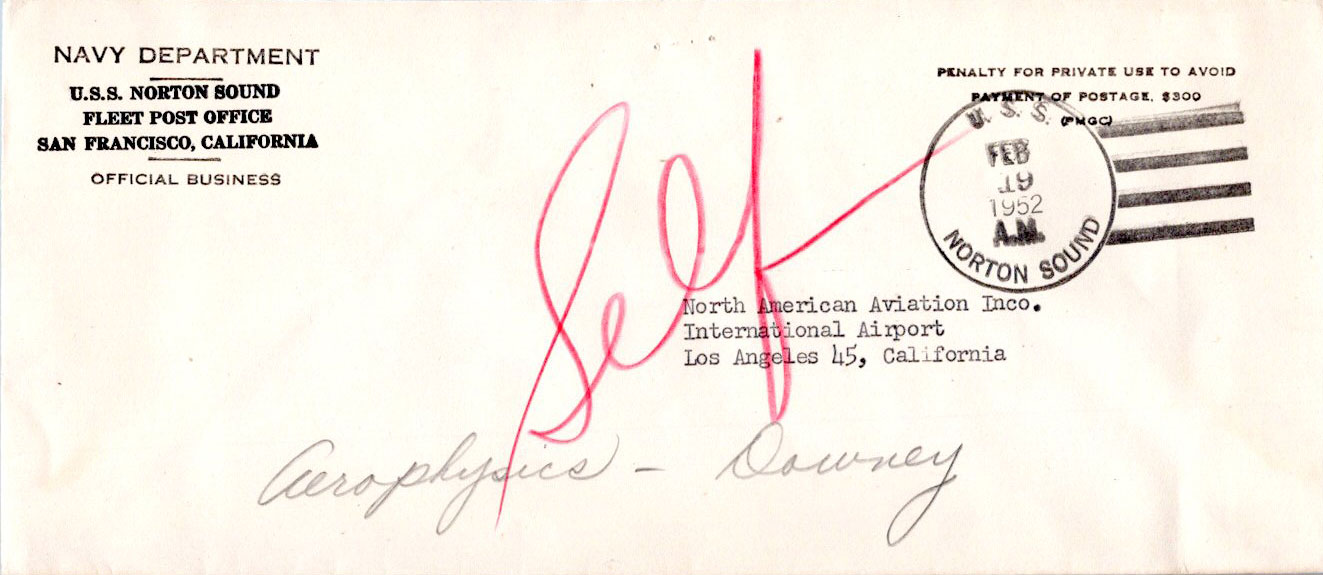 NAVY DEPARTMENT
U.S.S. NORTON SOUND
FLEET POST OFFICE
SAN FRANCISCO, CALIFORNIA
OFFICIAL BUSINESS
PENALTY FOR PRIVATE USE TO AVOID
PAYMENT OF POSTAGE, $300
(PMGC)
U. S. S.
FEB
19
1952
A.M.
NORTON SOUND
Self
North American Aviation Inco.
International Airport
Los Angeles 45, California
Aerophysics - Downey